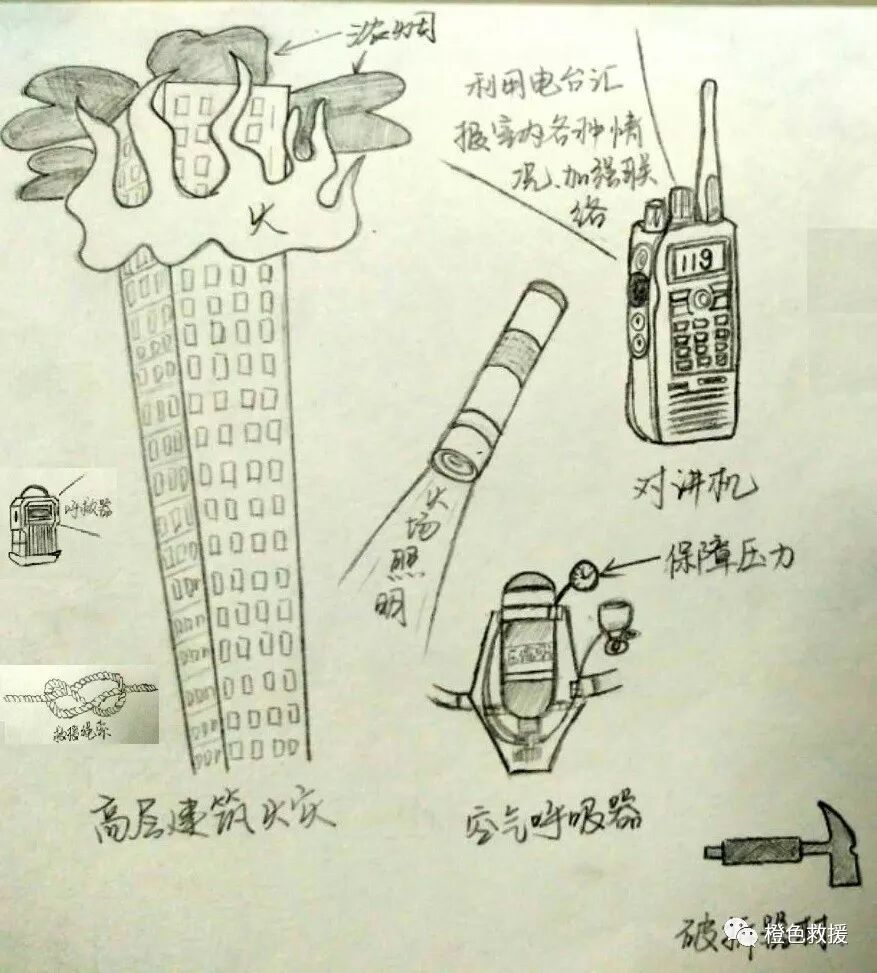 浓烟
利用电台汇
报室内各种情
况、加强联
络
火
119
对讲机
火场照明
呼救器
保障压力
压缩空气
救援绳索
高层建筑火灾
空气呼吸器
破拆器材
橙色救援